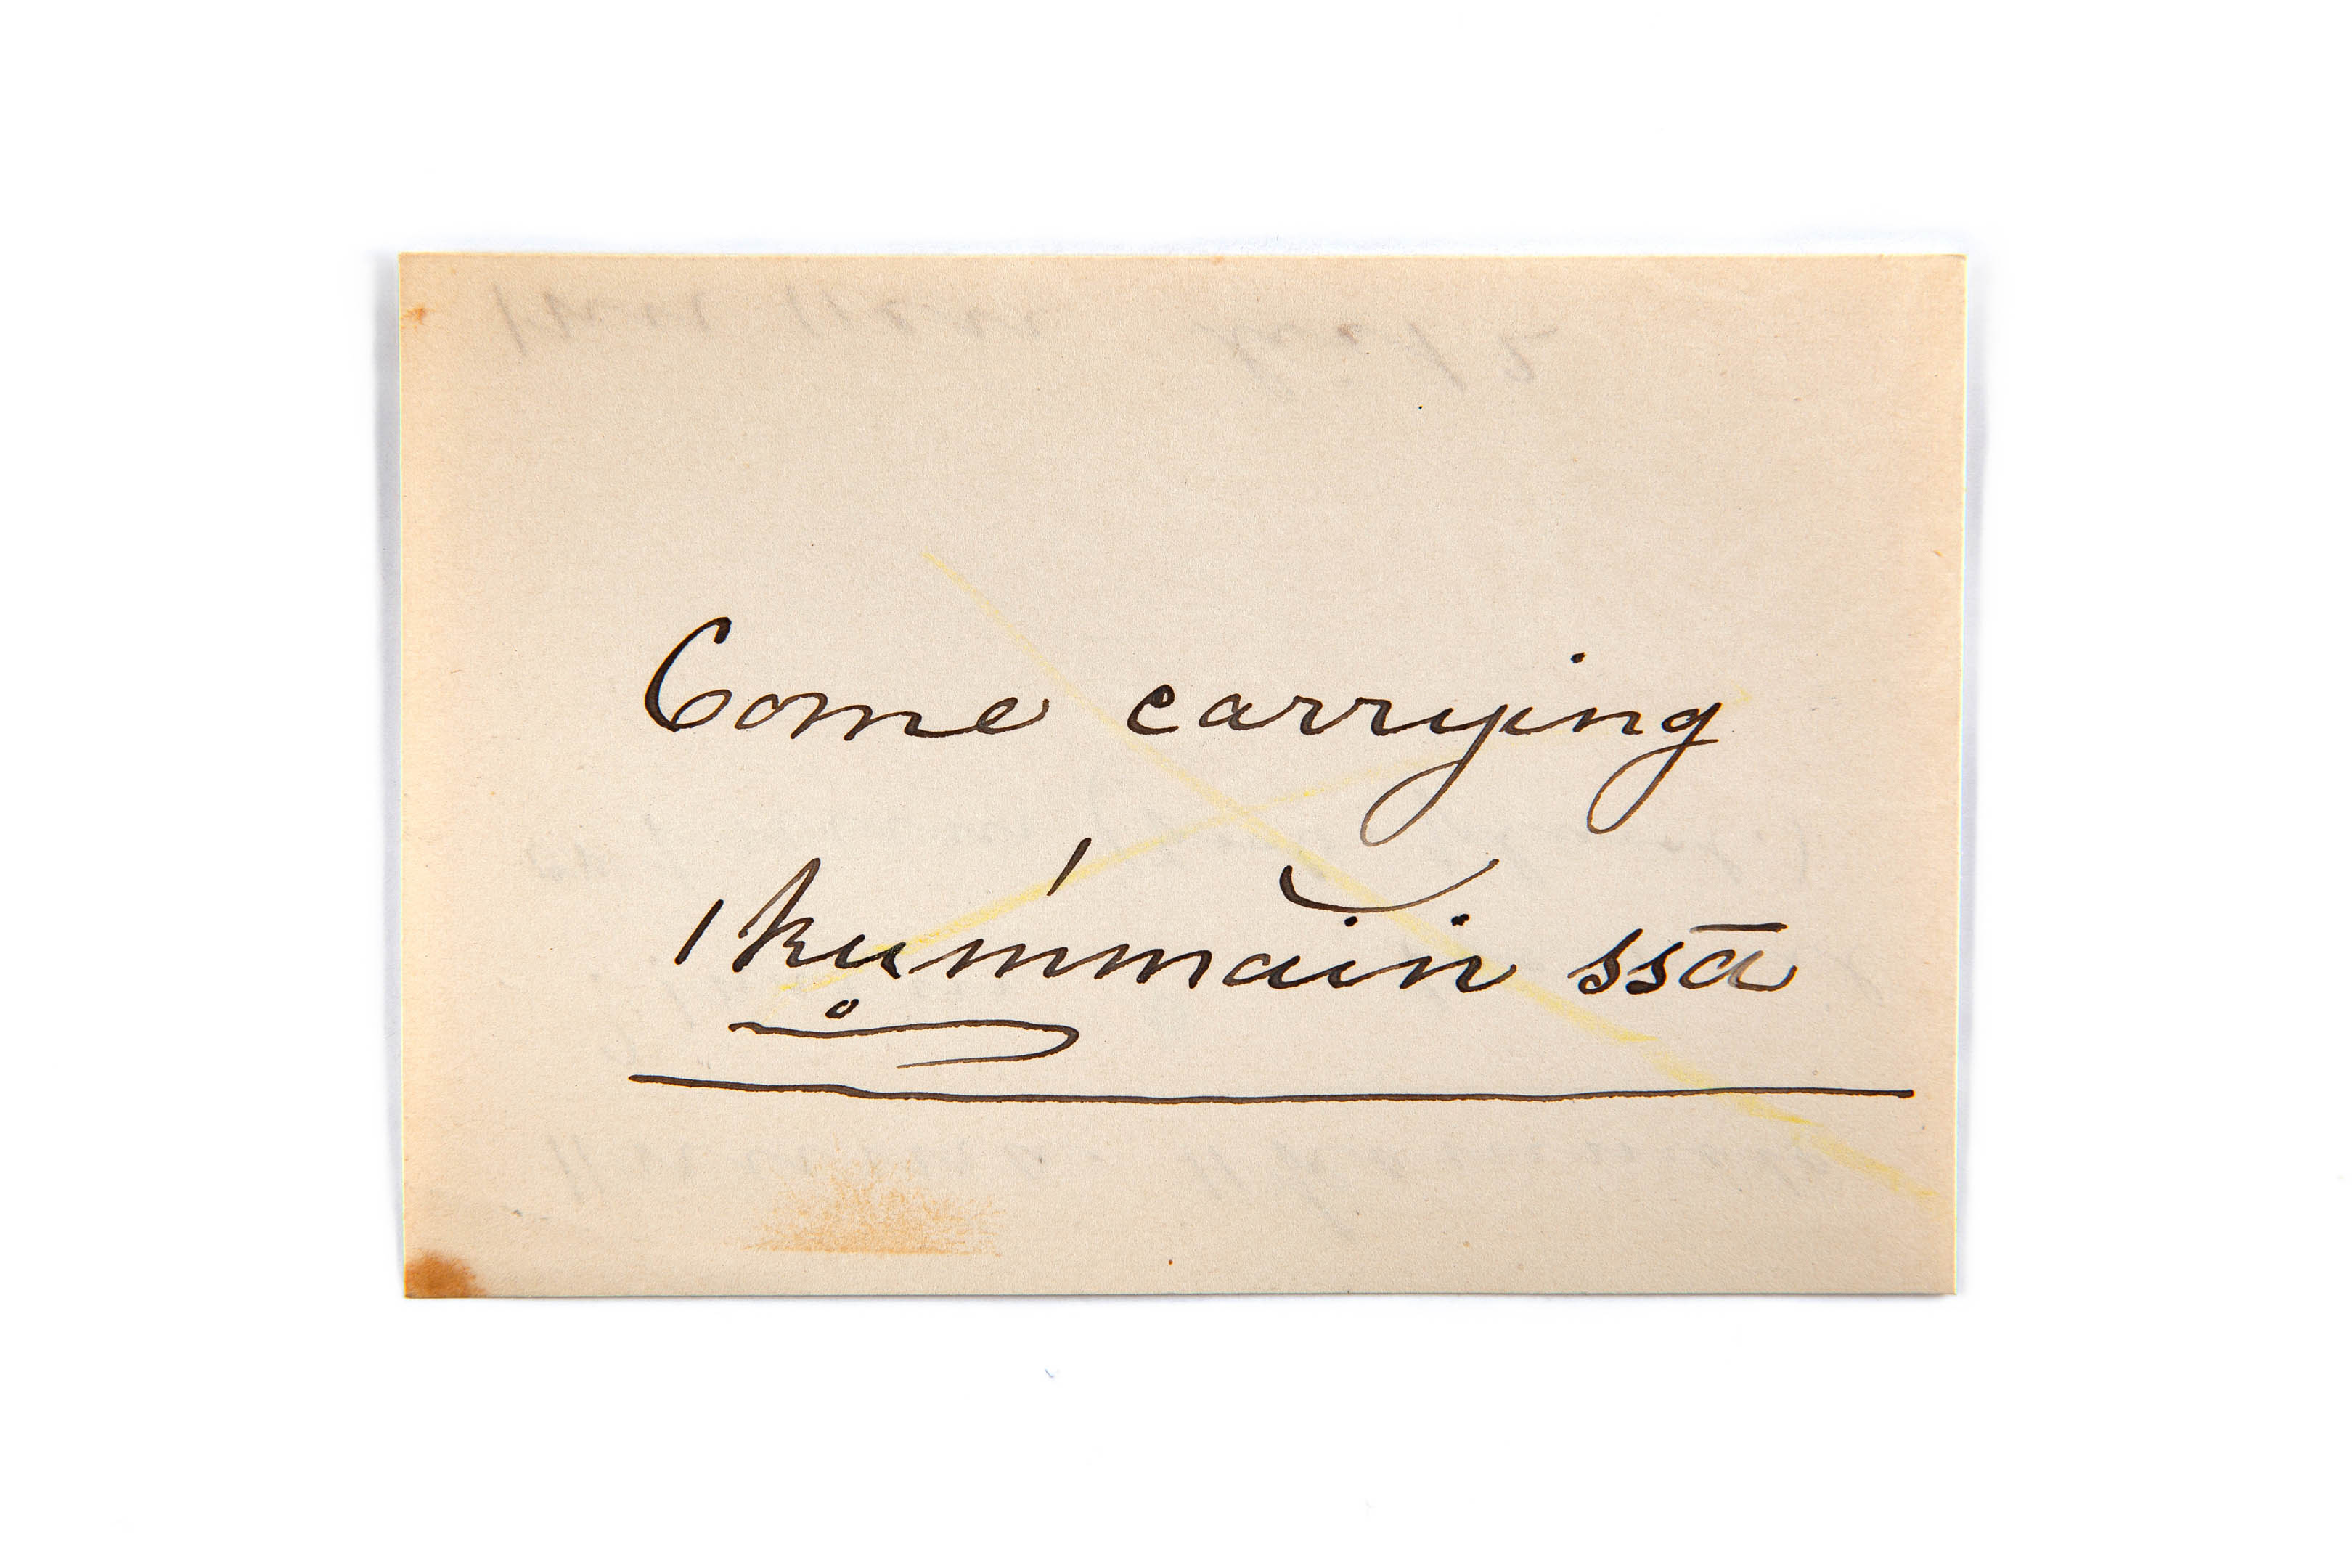 Come carrying
/ku̥m'mai͝n ssā